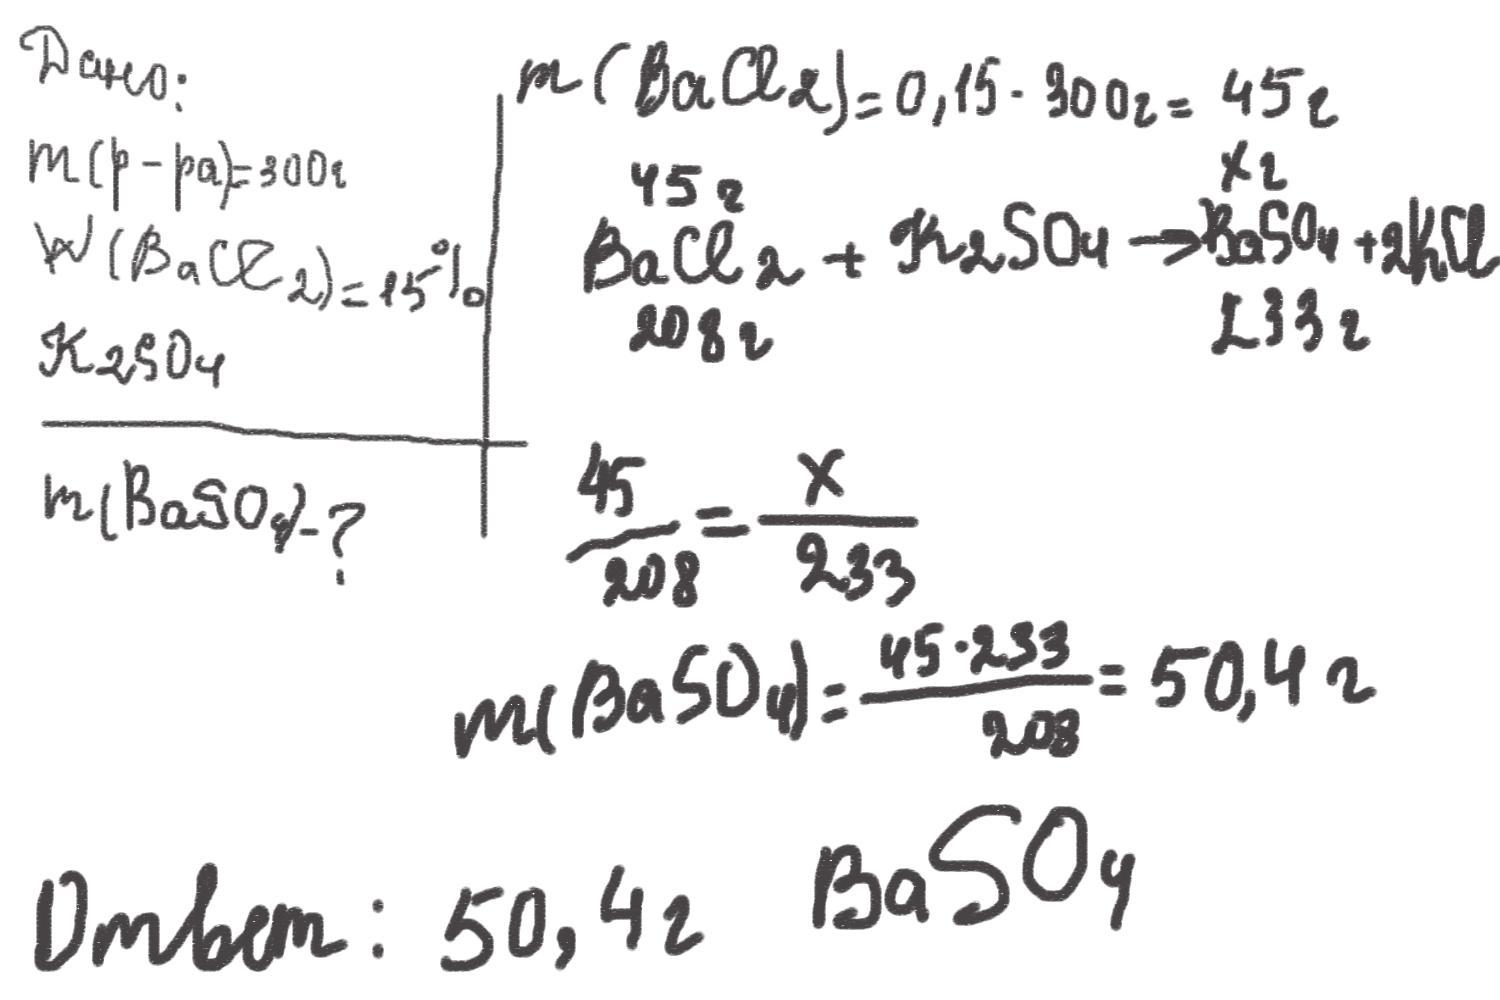 Дано:
m(р-ра)=300г
W(BaCl2)=15%
K2SO4
m(BaSO4)-?
m(BaCl2)=0,15·300г=45г
45г xг
BaCl2 + K2SO4 → BaSO4 + 2KCl
208г 233г
45/208 = x/233
m(BaSO4)= 45·233/208 = 50,4 г
Ответ: 50,4 г BaSO4